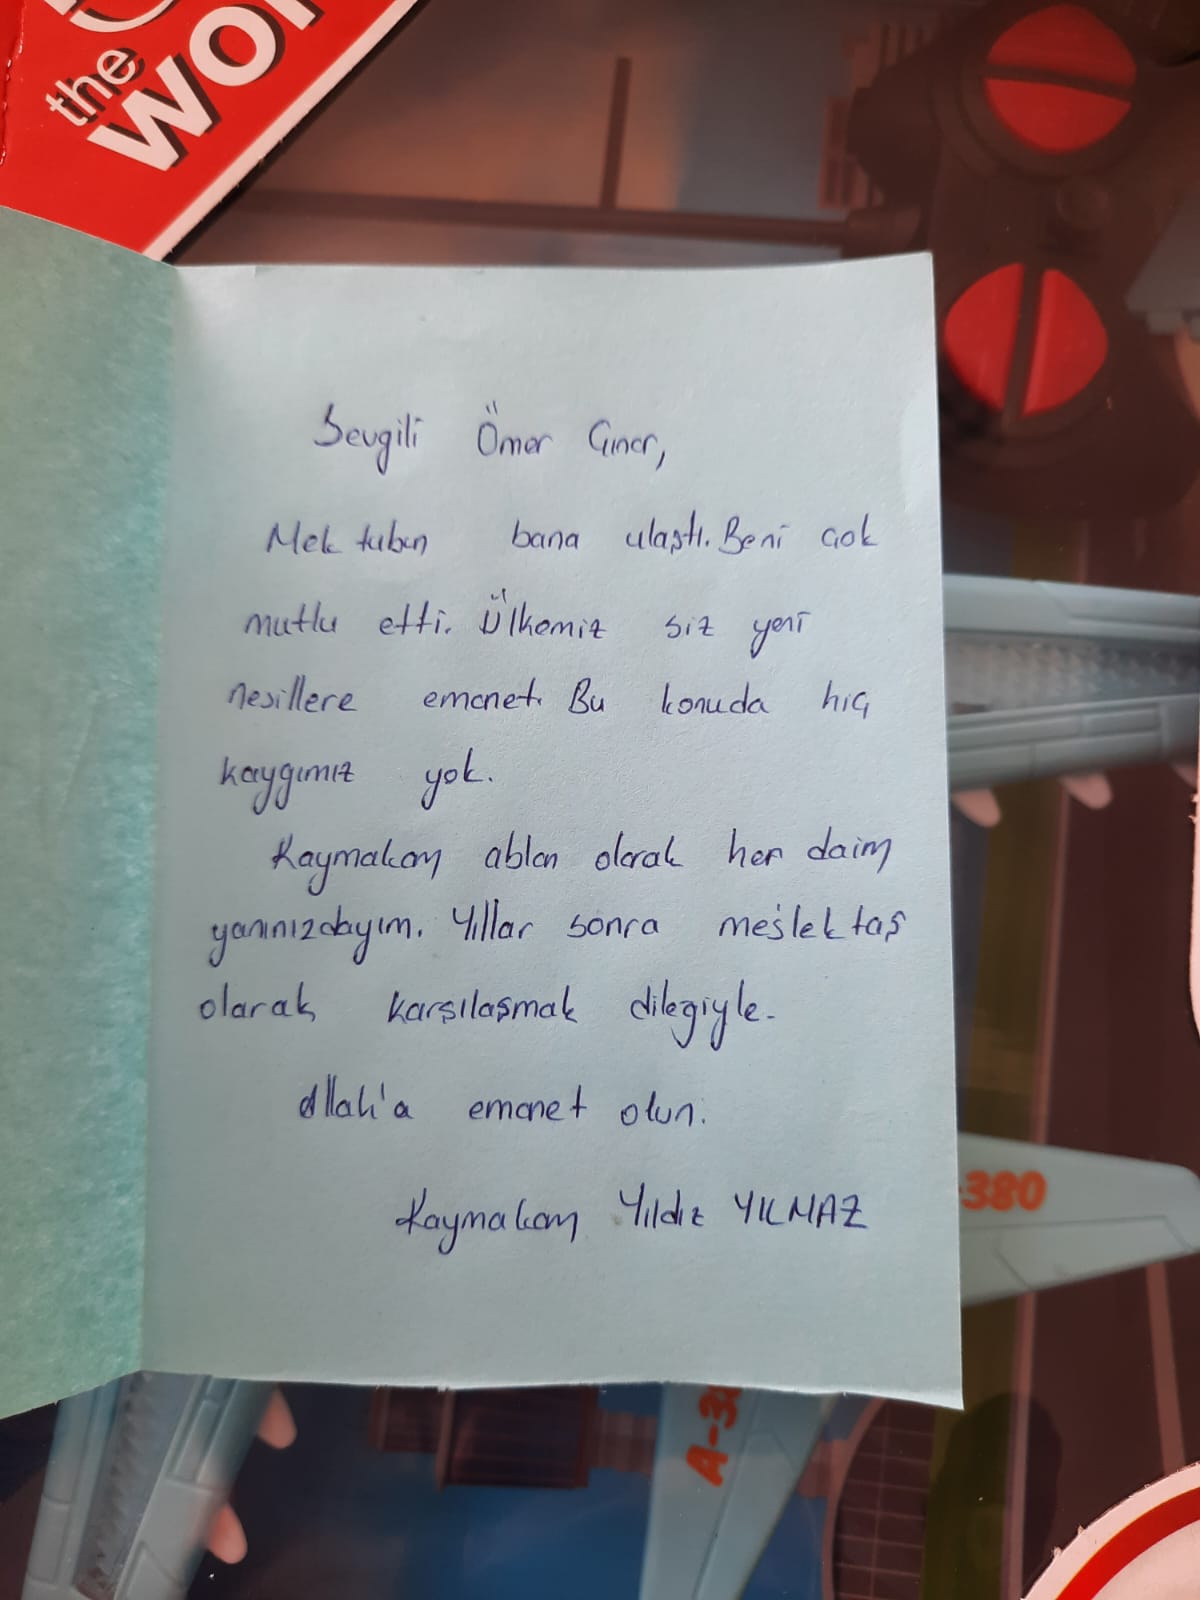 the
WOR
Sevgili Ömer Çınar,
Mektubun bana ulaştı. Beni çok
mutlu etti. Ülkemiz siz yeni
nesillere emanet. Bu konuda hiç
kaygımız yok.
Kaymakam ablan olarak her daim
yanınızdayım. Yıllar sonra meslektaş
olarak karşılaşmak dileğiyle.
Allah'a emanet olun.
Kaymakam Yıldız YILMAZ
-380
A-38